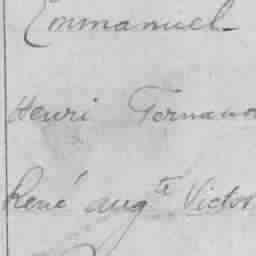 Emmanuel
Henri Fernand
René Augte Victor